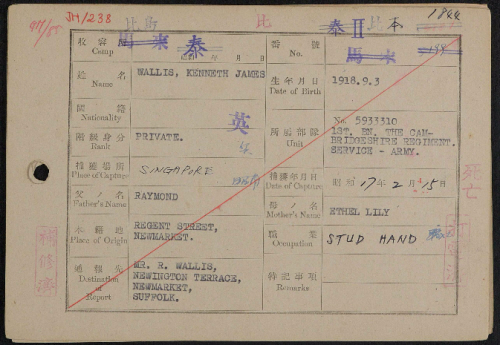 JM/238
比島
比
泰II
比本
1844
收容所 Camp
馬来 泰
番號 No.
馬来
姓名 Name
WALLIS, KENNETH JAMES
生年月日 Date of Birth
1918.9.3
國籍 Nationality
英
階級身分 Rank
PRIVATE.
所屬部隊 Unit
No. 5933310
1ST. BN. THE CAM-
BRIDGESHIRE REGIMENT.
SERVICE - ARMY.
捕獲場所 Place of Capture
SINGAPORE
捕獲年月日 Date of Capture
昭和 17年 2月 15日
父ノ名 Father's Name
RAYMOND
母ノ名 Mother's Name
ETHEL LILY
本籍地 Place of Origin
REGENT STREET,
NEWMARKET.
職業 Occupation
STUD HAND
通報先 Destination of Report
MR. R. WALLIS,
NEWINGTON TERRACE,
NEWMARKET,
SUFFOLK.
特記事項 Remarks
死亡
補修濟